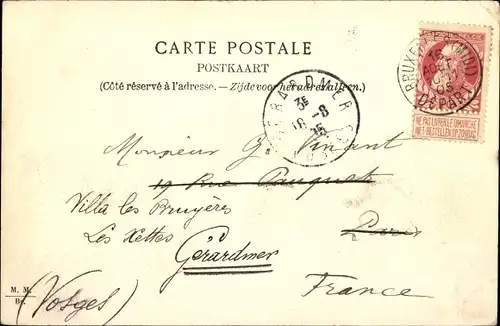 CARTE POSTALE
POSTKAART
(Côté réservé à l'adresse. — Zijde voor heradres alleen.)
BRUXELLES (MIDI)
15
AOUT
05
DÉPART
NE PAS LIVRER LE DIMANCHE
NIET BESTELLEN OP ZONDAG
GERARDMER
3E
16 -8
05
Monsieur G. Vinant
19 Rue Pauquet
Villa les Bruyères
Paris
Les Xettes Gérardmer
France
M. M.
Br.
(Vosges)